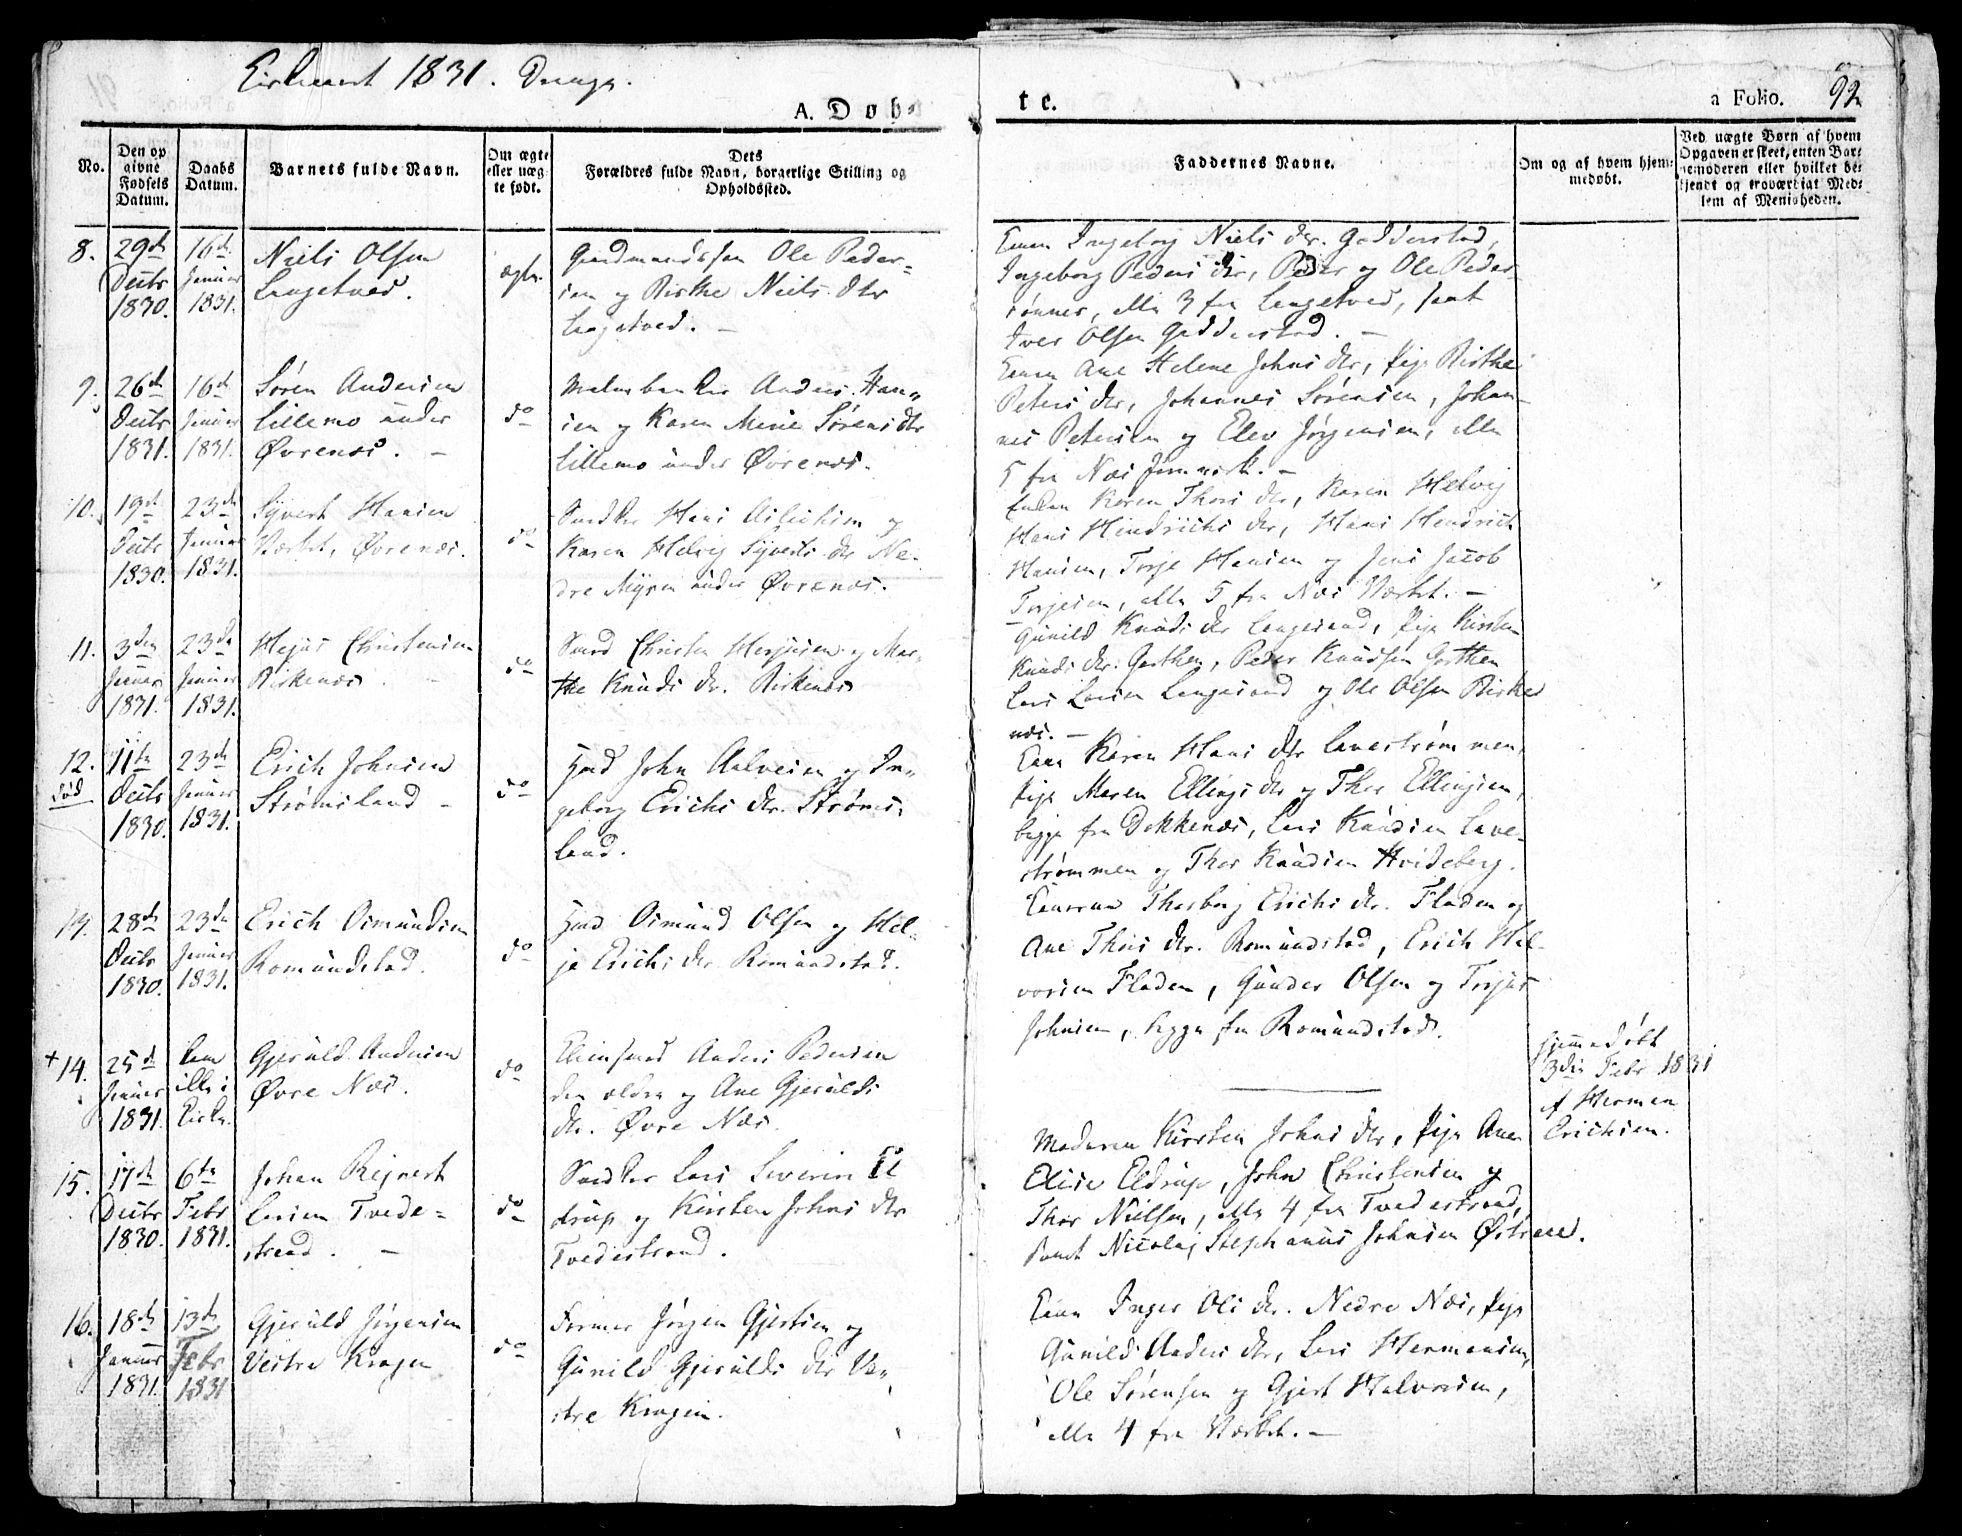 1831. Drenge.
A. Døb
te.
a Folio. 92
No.
Den op
givne
Fødsels
Datum.
Daabs
Datum.
Barnets fulde Navn.
Om ægte
eller uæg
te født.
Dets
Forældres fulde Navn, borgerlige Stilling og
Opholdssted.
Faddernes Navne.
Om og af hvem hjem:
medøbt.
Ved uægte Børn af hvem
Opgaven er skeet, enten Bar:
nemoderen eller hvilket be:
kjendt og troværdigt Med:
lem af Menigheden.
8.
29de
Decbr
1830.
16de
Januar
1831.
Niels Olsen
Langetved.
ægte.
Gaardmandssøn Ole Peder=
sen og Birthe Niels dtr
Langetved. -
Ingeborg Niels dtr. Godderstad,
Ingeborg Peders dtr, Peder og Ole Peder
sønner, alle 3 fra Langetved, samt
Iver Olsen Godderstad. -
9.
26de
Decbr
1831.
16de
Januar
1831.
Søren Andersen
Lillemo under
Øvrenæs. -
do
Anders Han=
sen og Karen Marie Sørens dtr
Lillemo under Øvrenæs.
Ane Helene Johns dtr, Pige Birthe
Peters dtr, Johannes Sørensen, Johan-
nes Petersen og Elev Jørgensen, alle
5 fra Næs Jernværk. -
10.
19de
Decbr
1830.
23de
Januar
1831.
Syvert Hansen
Værket, Øvrenæs.
do
Hans
Karen Helvig Syverts dtr Ne-
dre Myren under Øvrenæs.
Karen Thors dtr, Karen Helvig
Hans Hindrichs dtr, Hans Hendrich
Hansen, Torje Hansen og Jens Jacob
Torjesen, alle 5 fra Næs Værket. -
11.
3den
Januar
1831.
23de
Januar
1831.
Christensen
Birkenæs. -
do
Christen og Mar-
the Knuds dtr. Birkenæs
Gunild Knuds dtr Langesand, Pige Kirsten
Knuds dtr. Gosthen, Peder Knudsen Gosthen
Lars Larsen Langesand og Ole Olsen Birke
næs. -
12.
død
11te
Decbr
1830.
23de
Januar
1831.
Erich Johnsen
Strømsland -
do
Hmd John Aalvesen og In=
geborg Erichs dtr. Strøms=
land.
Karen Hans dtr Lavestrømmen,
Pige Maren Ellings dtr og Thor Ellingsen,
begge fra Dokkenæs, Lars Knudsen Lave-
strømmen og Thor Knudsen Hvideberg.
13.
28de
Decbr
1830.
23de
Januar
1831.
Erich Osmundsen
Romundstad.
do
Hmd Osmund Olsen og Hel-
je Erichs dtr Romundstad.
Thorborg Erichs dtr. Fladen og
Ane Thors dtr. Romundstad, Erich Hal-
vorsen Fladen, Gunder Olsen og Torjus
Johnsen, begge fra Romundstad.
+14.
25de
Januar
1831.
Kom
ikke i
Kirke.
Gjeruld Andersen
Øvre Næs.
do
Anders Pedersen
den ældre og Ane Gjerulds
dtr. Øvre Næs.
hjemmedøbt
3die Febr 1831
af Herman
Erichsen.
15.
17de
Decbr
1830.
6te
Febr
1831.
Johan Rejnert
Larsen Tvede=
strand. -
do
Lars Severin El
drup og Kirsten Johns dtr
Tvedestrand.
Moderen Kirsten Johns dtr, Pige Ane
Elise Eldrup, John Christensen og
Thor Nielsen, alle 4 fra Tvedestrand,
samt Nicolaj Stephanus Johnsen Østeraae.
16.
18de
Januar
1831.
13de
Febr
1831
Gjeruld Jørgensen
Vestre Kragen
do
Former Jørgen Gjertsen og
Gunild Gjerulds dtr Ve=
stre Kragen.
Inger Ols dtr. Nedre Næs, Pige
Gunild Anders dtr, Lars Hermansen,
Ole Sørensen og Gjert Halvorsen,
alle 4 fra Værket. -